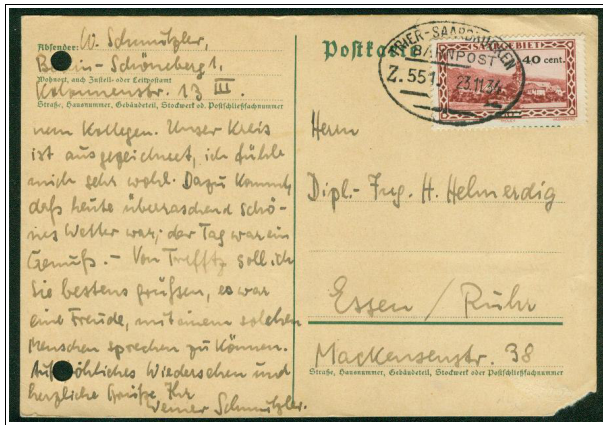 Absender: W. Schmutzler,
Berlin-Schöneberg 1,
Wohnort, auch Zustell- oder Leitpostamt
Kolonnenstr. 13 III.
Straße, Hausnummer, Gebäudeteil, Stockwerk od. Postschließfachnummer
nem Kollegen. Unser Kreis
ist ausgezeichnet, ich fühle
mich sehr wohl. Dazu kommt,
daß heute überraschend schö-
nes Wetter war; der Tag war ein
Genuß. – Von Trefftz soll ich
Sie bestens grüßen, es war
eine Freude, mit einem solchen
Menschen sprechen zu können.
Auf fröhliches Wiedersehen und
herzliche Grüße, Ihr
Werner Schmutzler.
Postkarte
TRIER-SAARBRÜCKEN
BAHNPOST
Z. 551 23.11.34
SAARGEBIET
40 cent.
Herrn
Dipl.-Ing. H. Helmerdig
Essen / Ruhr
Mackensenstr. 38
Straße, Hausnummer, Gebäudeteil, Stockwerk oder Postschließfachnummer